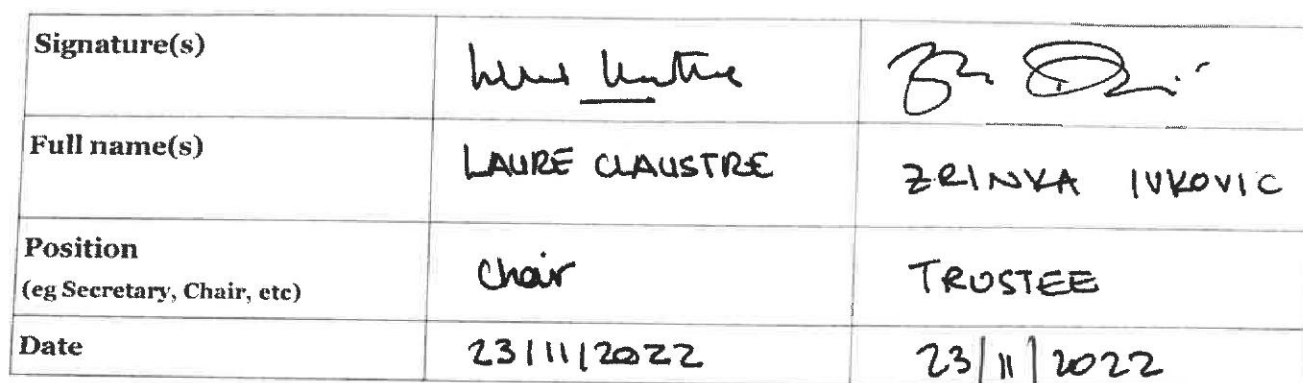 Signature(s)
Full name(s) LAURE CLAUSTRE ZRINKA IVKOVIC
Position
(eg Secretary, Chair, etc) Chair TRUSTEE
Date 23/11/2022 23/11/2022